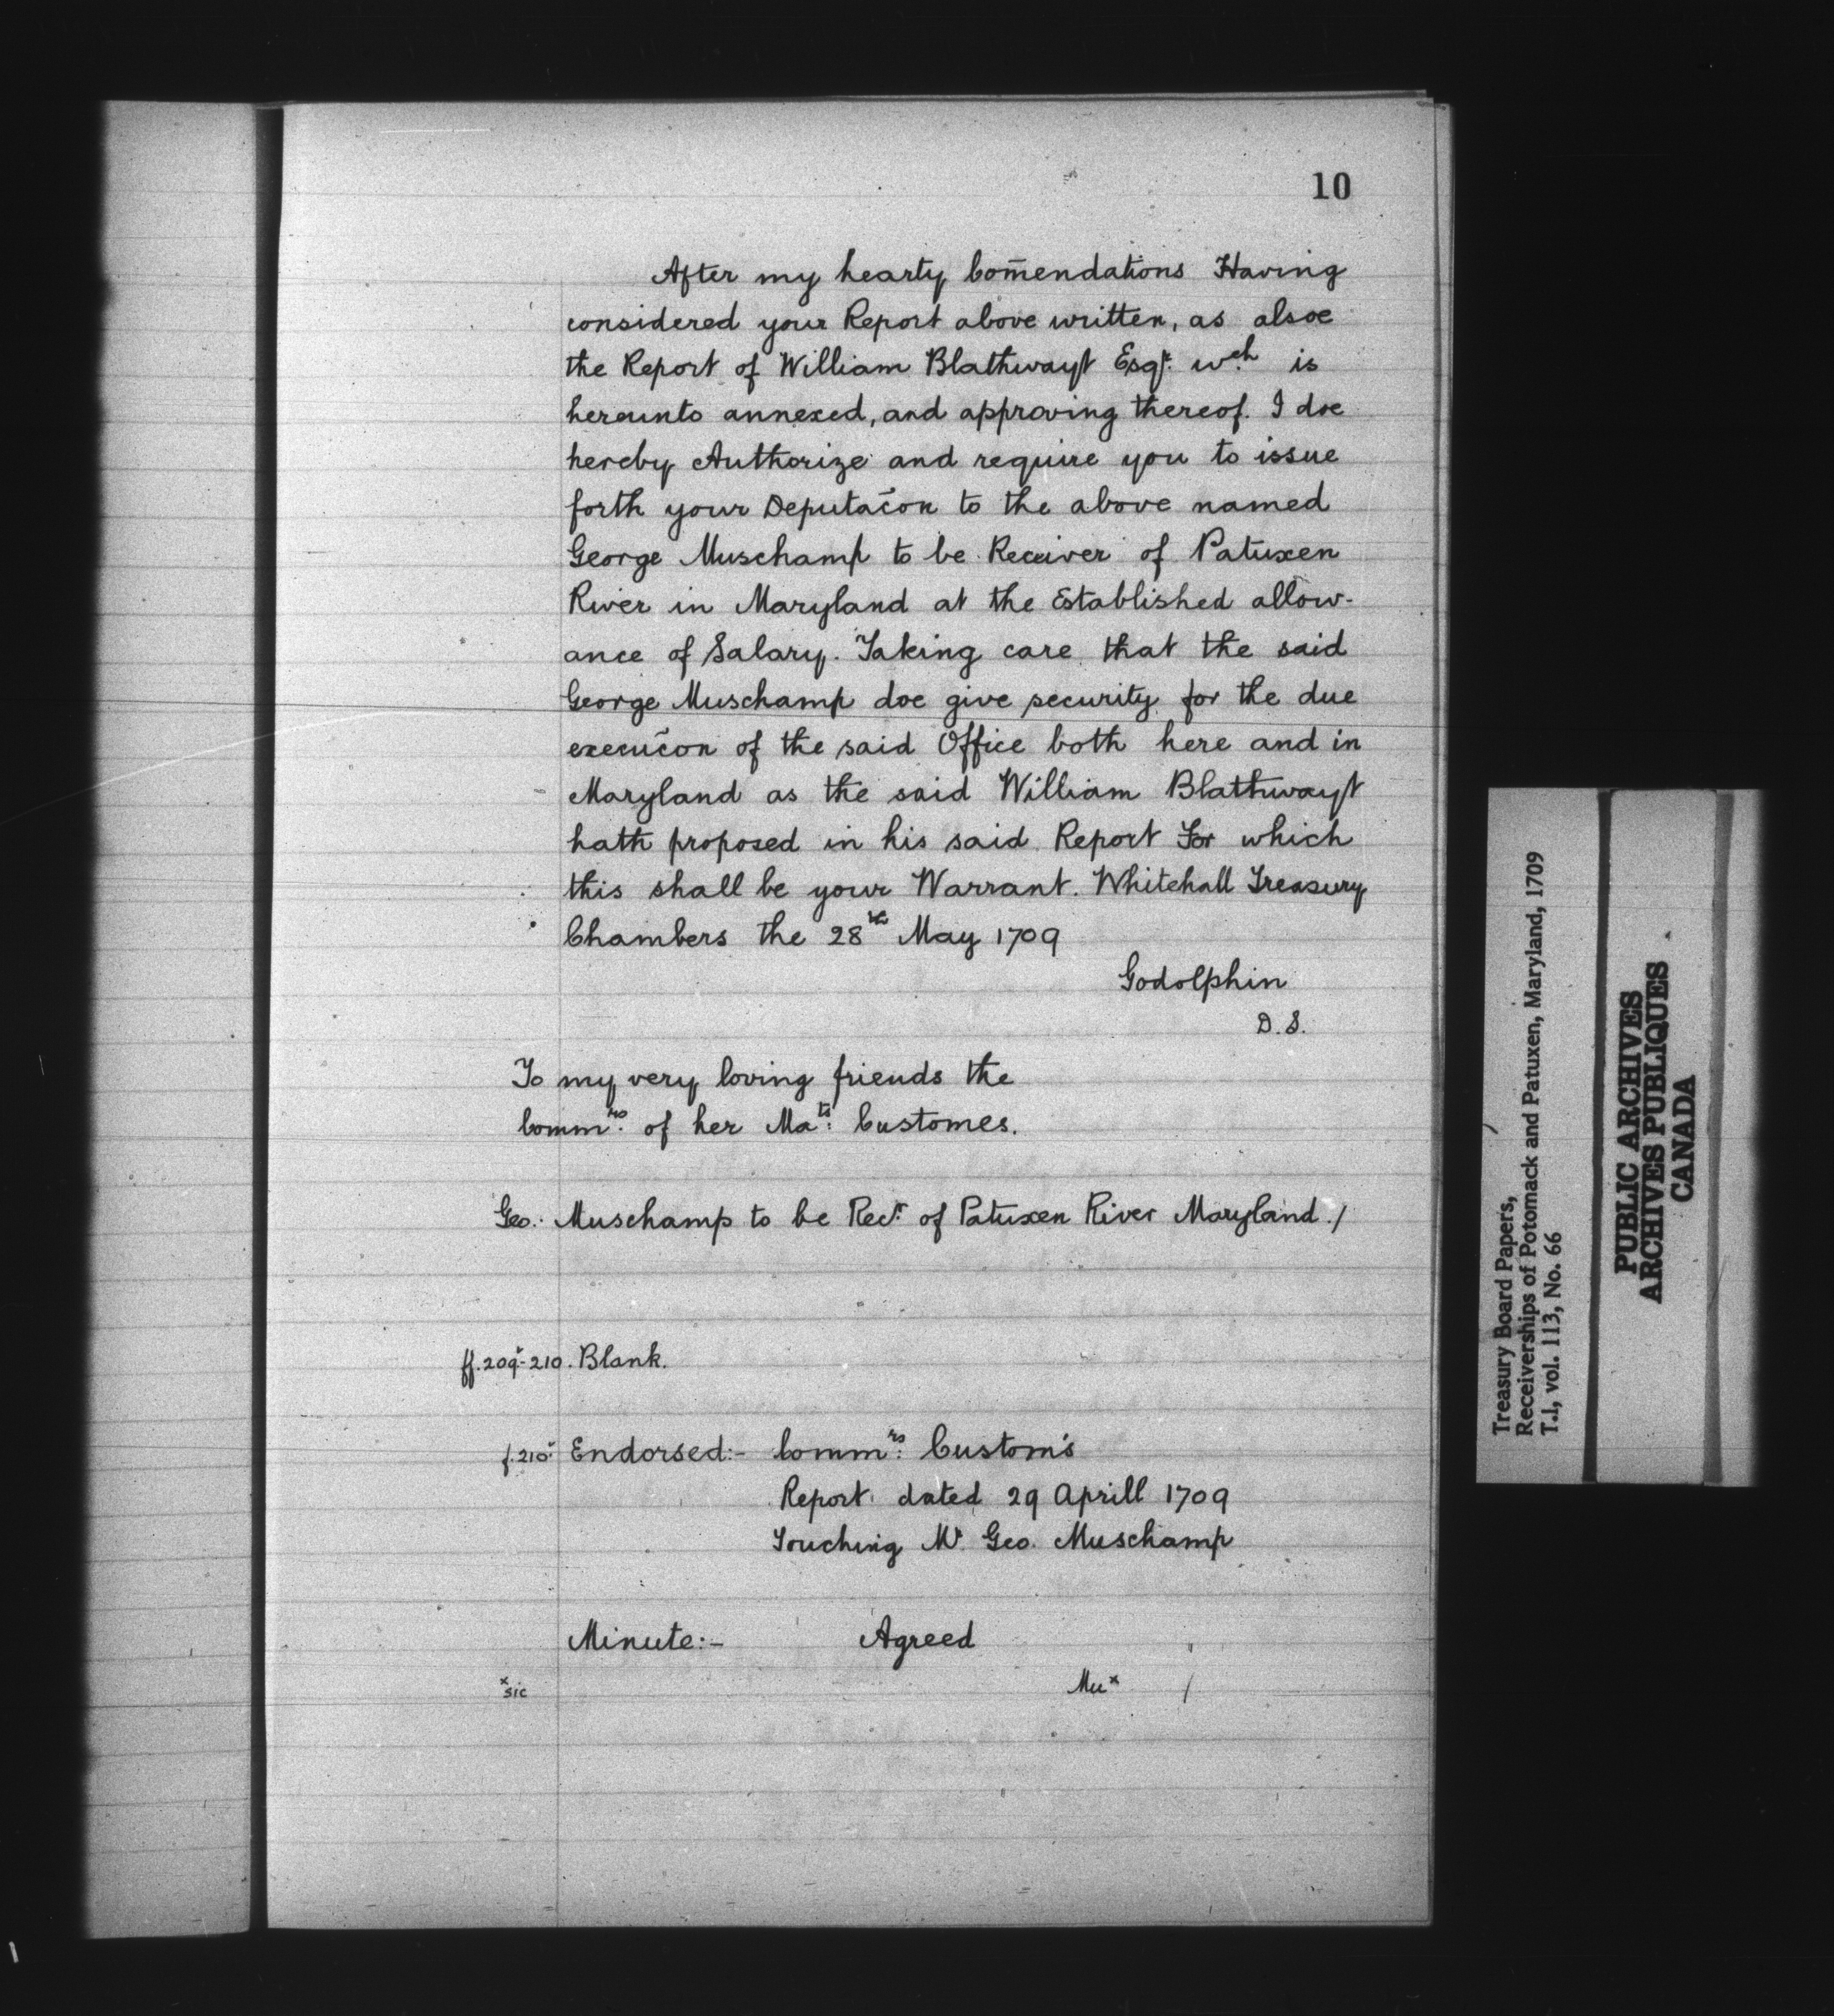 10
After my hearty Com̃endations Having
considered your Report above written, as alsoe
the Report of William Blathwayt Esqr. wch. is
hereunto annexed, and approving thereof. I doe
hereby Authorize and require you to issue
forth your Deputac̃on to the above named
George Muschamp to be Receiver of Patuxen
River in Maryland at the Established allow-
ance of Salary. Taking care that the said
George Muschamp doe give security for the due
execuc̃on of the said Office both here and in
Maryland as the said William Blathwayt
hath proposed in his said Report For which
this shall be your Warrant. Whitehall Treasury
Chambers the 28th May 1709
Godolphin
D. S.
To my very loving friends the
Commrs. of her Mats: Customes.
Geo: Muschamp to be Recr. of Patuxen River Maryland./
ff. 209v-210. Blank.
f. 210v Endorsed:- Commrs: Custom's
Report dated 29 Aprill 1709
Touching Mr. Geo. Muschamp
Minute:- Agreed
x sic Mux /
Treasury Board Papers,
Receiverships of Potomack and Patuxen, Maryland, 1709
T.1, vol. 113, No. 66
PUBLIC ARCHIVES
ARCHIVES PUBLIQUES
CANADA